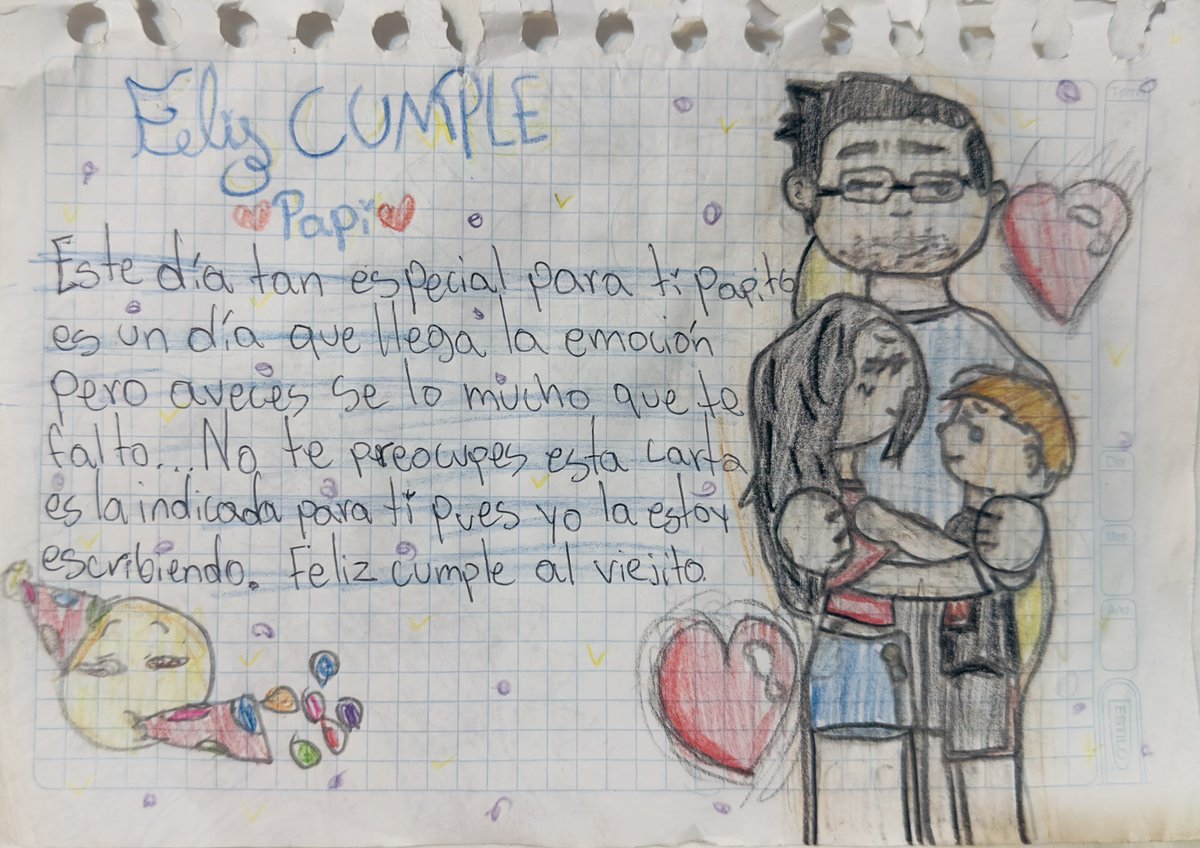 Feliz CUMPLE
Papi
Este día tan especial para ti papito
es un día que llega la emoción
pero aveces se lo mucho que te
falto... No te preocupes esta carta
es la indicada para ti pues yo la estoy
escribiendo. Feliz cumple al viejito.
Tema
Mes
ESTILO